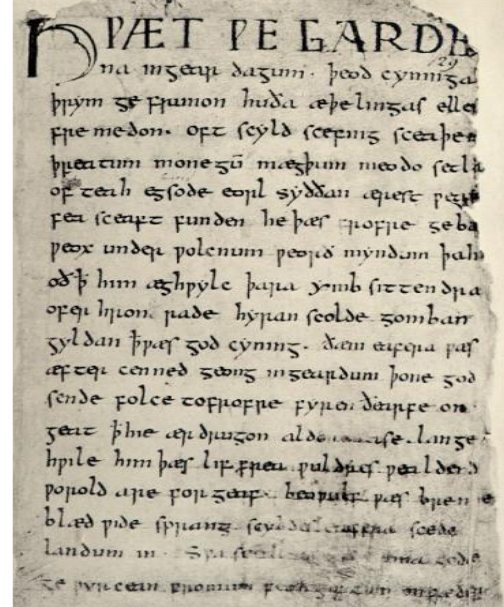 HǷÆT ǷE GARDE
129
na ingear dagum. þeod cyninga
þrym ge frunon huða æþelingas elle
fre medon. oft scyld scefing sceaþen
þreatum monegū mægþum meodo setla
of teah egsode eorl syððan ærest ƿear
fea sceaft funden he þæs frofre geba
ƿeox under ƿolcnum ƿeorð myndum þah
oð ꝥ him æghƿylc þara ymb sittendra
ofer hron rade hyran scolde gomban
gyldan ꝥ ƿæs god cyning. ðæm eafera ƿæs
æfter cenned geong ingeardum þone god
sende folce tofrofre fyren ðearfe on
geat ꝥ hie ær drugon aldor ase. lange
hƿile him þæs lif frea ƿuldres ƿealdend
ƿorold are for geaf. beoƿulf ƿæs breme
blæd ƿide sprang scyldes eafera scede
landum in. Sƿa
ge ƿyrcean fromum feoh giftum on fæder